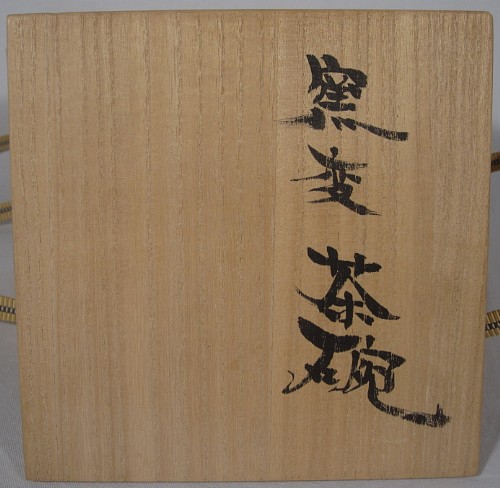 窯変茶碗